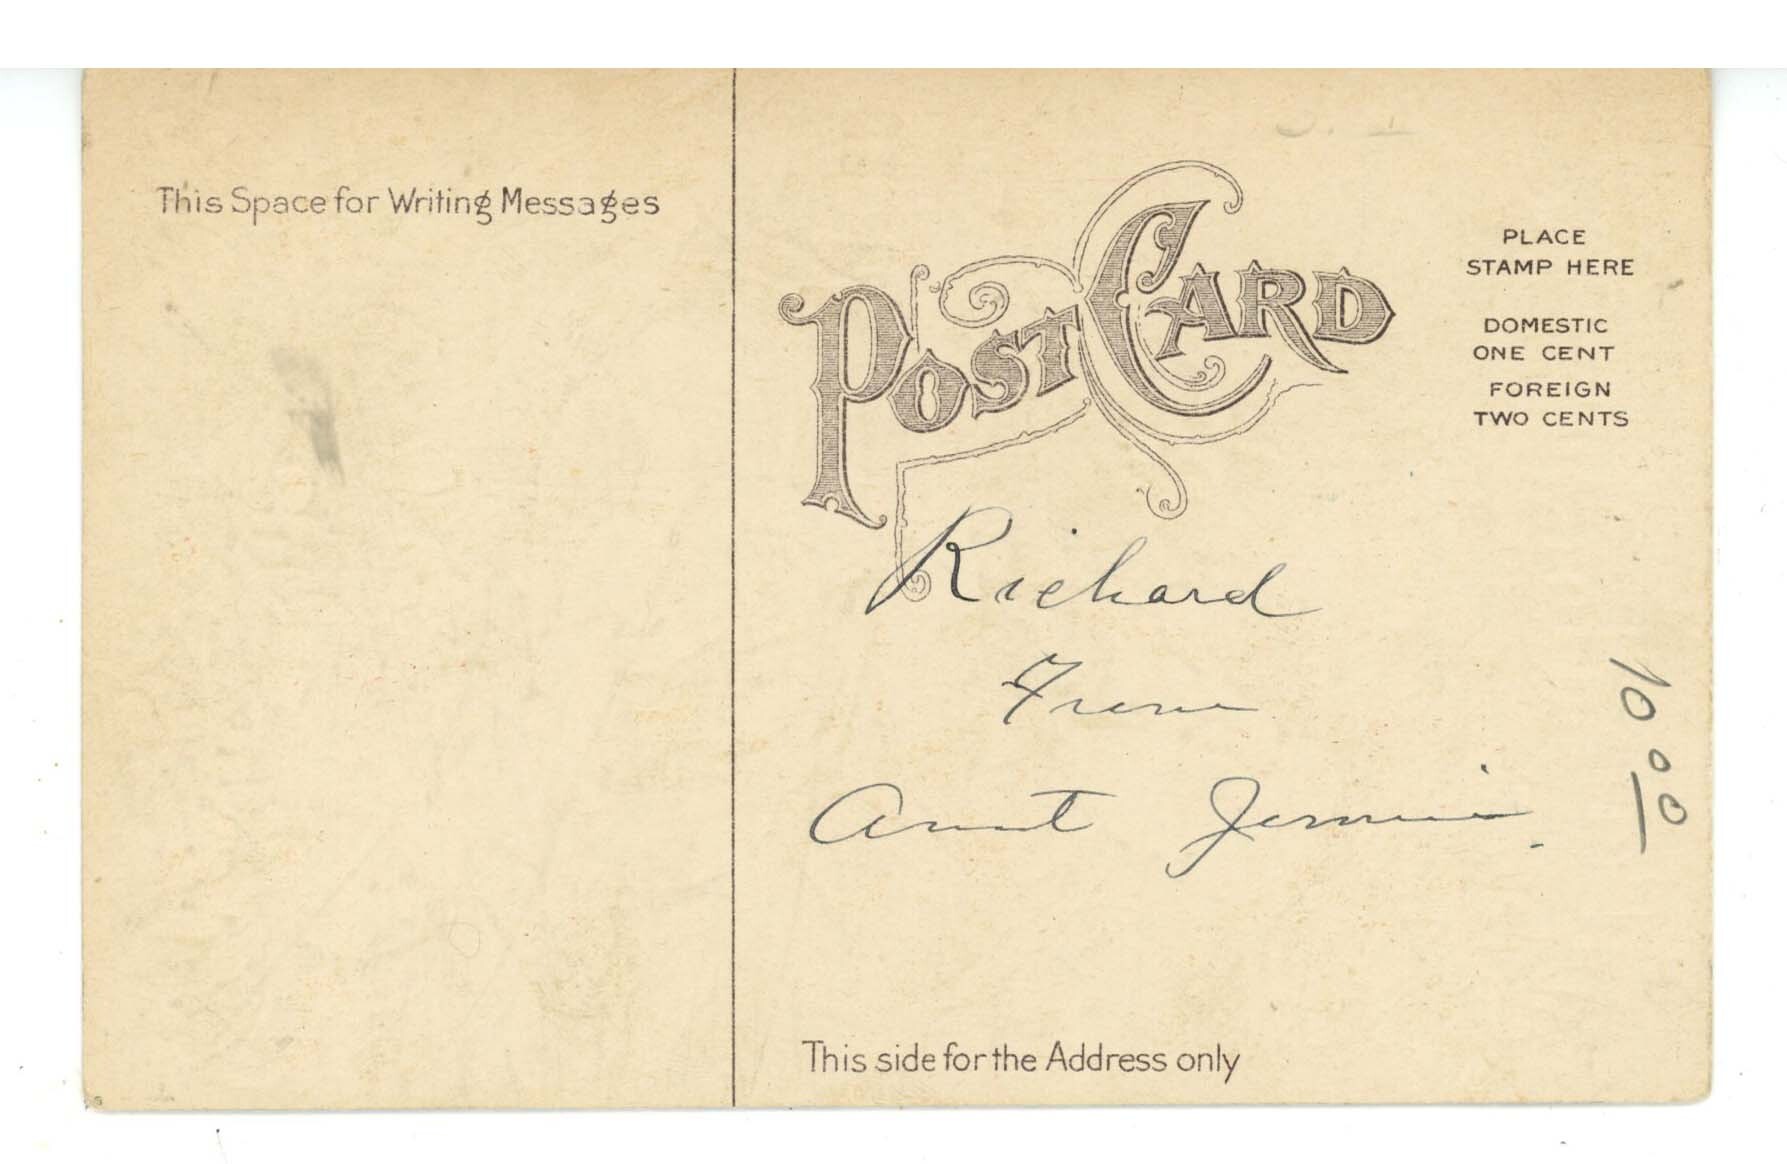 This Space for Writing Messages
POST CARD
PLACE
STAMP HERE
DOMESTIC
ONE CENT
FOREIGN
TWO CENTS
Richard
From
Aunt Jennie.
10 00
This side for the Address only